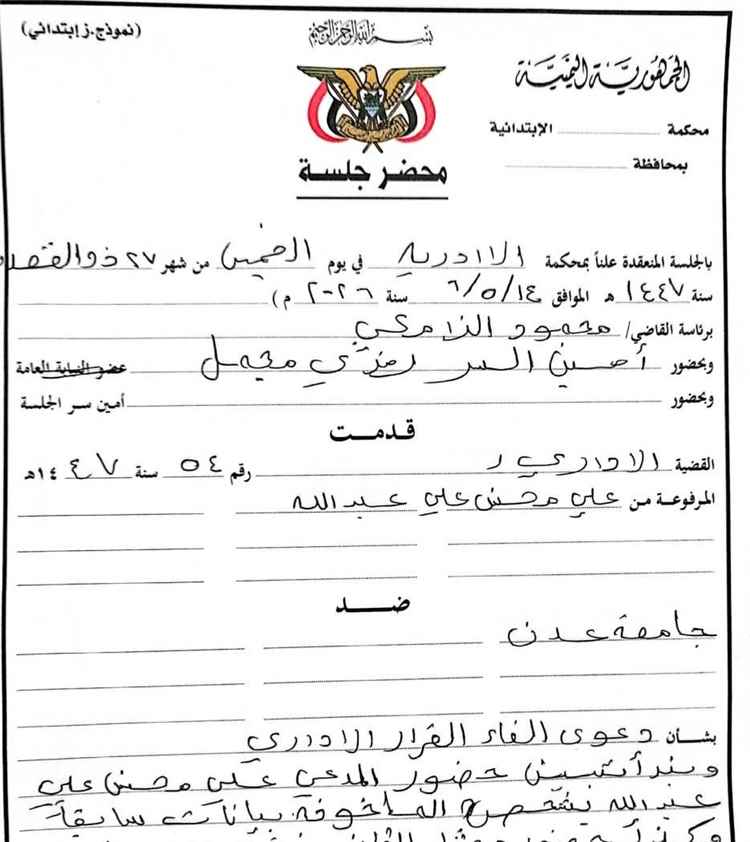 (نموذج.ز إبتدائي)
بسم الله الرحمن الرحيم
الجمهورية اليمنية
محكمة الإبتدائية
بمحافظة
محضر جلسة
بالجلسة المنعقدة علناً بمحكمة الادارية في يوم الخميس من شهر ٢٧ ذو القعدة
سنة ١٤٤٧ هـ الموافق ٦/٥/١٤ سنة ٢٠٢٦ م)
برئاسة القاضي/ محمود
وبحضور أمين السر رمزي عضو النيابة العامة
وبحضور أمين سر الجلسة
قدمت
القضية الاداري رقم ٥٤ سنة ١٤٤٧هـ
المرفوعة من علي محسن علي عبدالله
ضد
جامعة عدن
بشأن دعوى الغاء القرار الاداري
حضور المدعي علي محسن علي
عبدالله بشخصه المأخوذة بيانات سابقاً